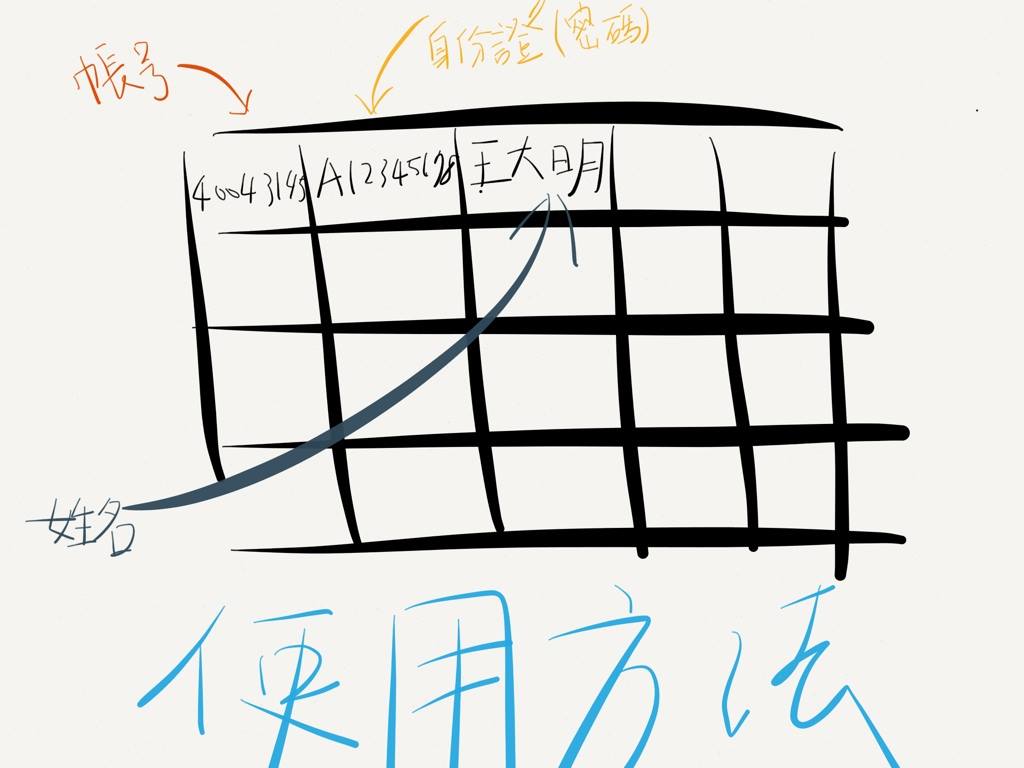 身份證(密碼)
帳号
40043145 A12345678 王大明
姓名
使用方法